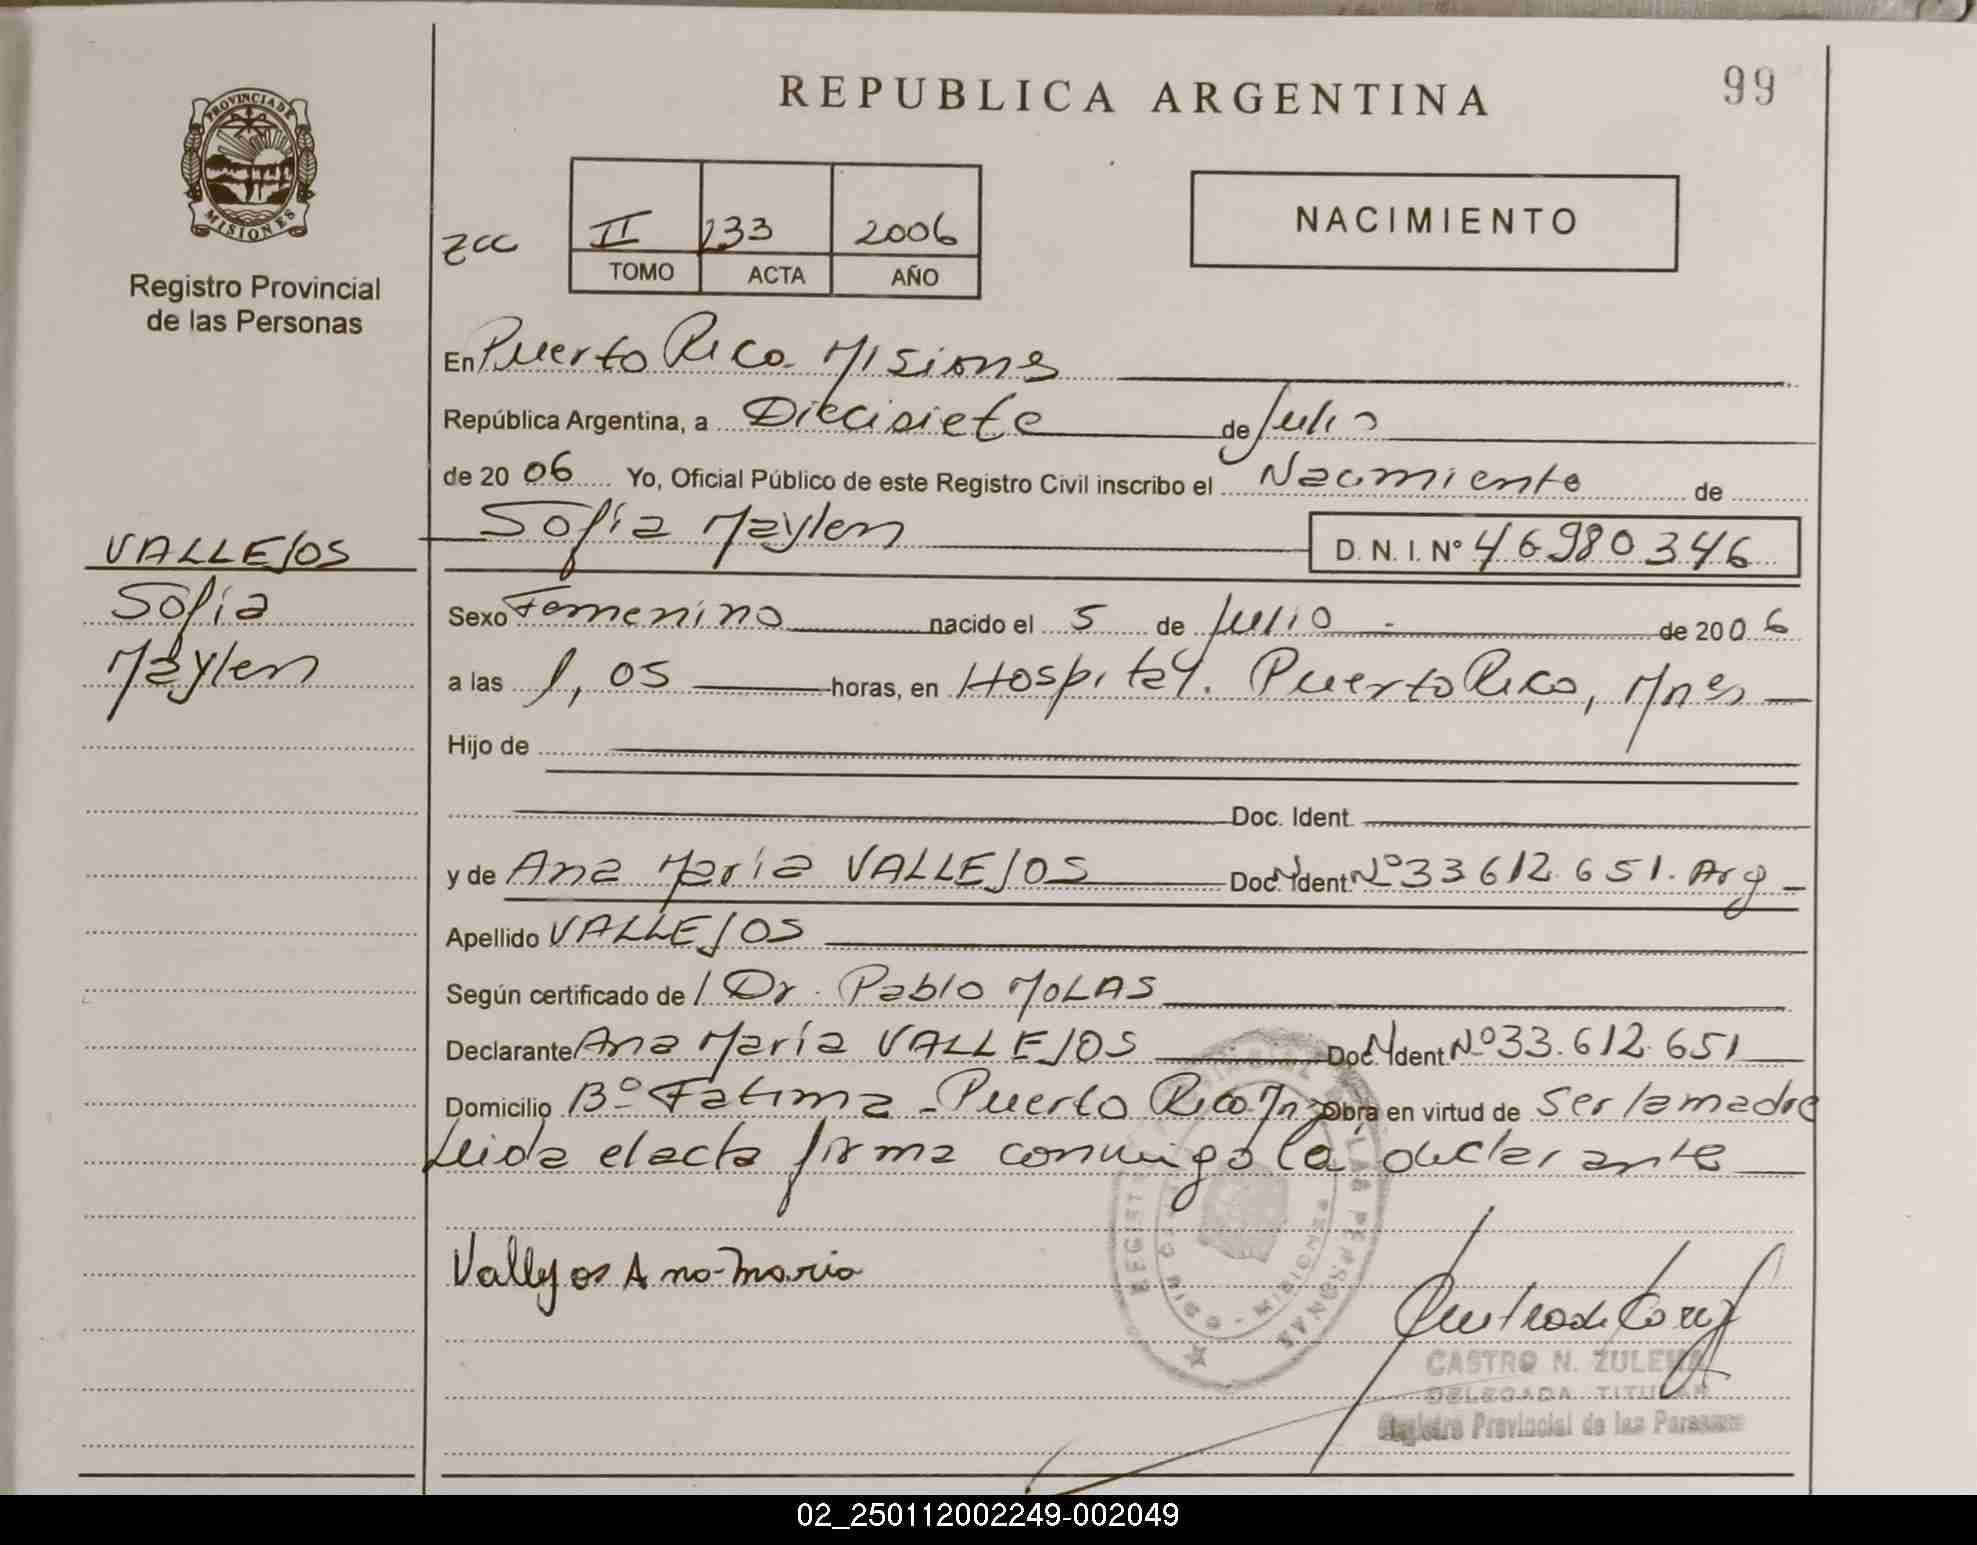 REPUBLICA ARGENTINA
99
PROVINCIA DE
MISIONES
Registro Provincial
de las Personas
zcc
II 233 2006
TOMO ACTA AÑO
NACIMIENTO
En Puerto Rico Misiones
República Argentina, a Diecisiete de Julio
de 2006 Yo, Oficial Público de este Registro Civil inscribo el Nacimiento de
Sofia Maylen D. N. I. N° 46980346
VALLEJOS
Sofia
Maylen
Sexo Femenino nacido el 5 de Julio de 2006
a las 1,05 horas, en Hospital. Puerto Rico, Mnes
Hijo de
Doc. Ident.
y de Ana María VALLEJOS Doc. Ident. Nº 33612.651. Arg
Apellido VALLEJOS
Según certificado de Dr. Pablo MOLAS
Declarante Ana María VALLEJOS Doc. Ident. Nº 33.612.651
Domicilio Bº Fatima - Puerto Rico Obra en virtud de Ser la madre
Leida el acta firma conmigo la declarante
Vallejos Ana Maria
CASTRO N. ZULEMA
DELEGADA TITULAR
Registro Provincial de las Personas
02_250112002249-002049